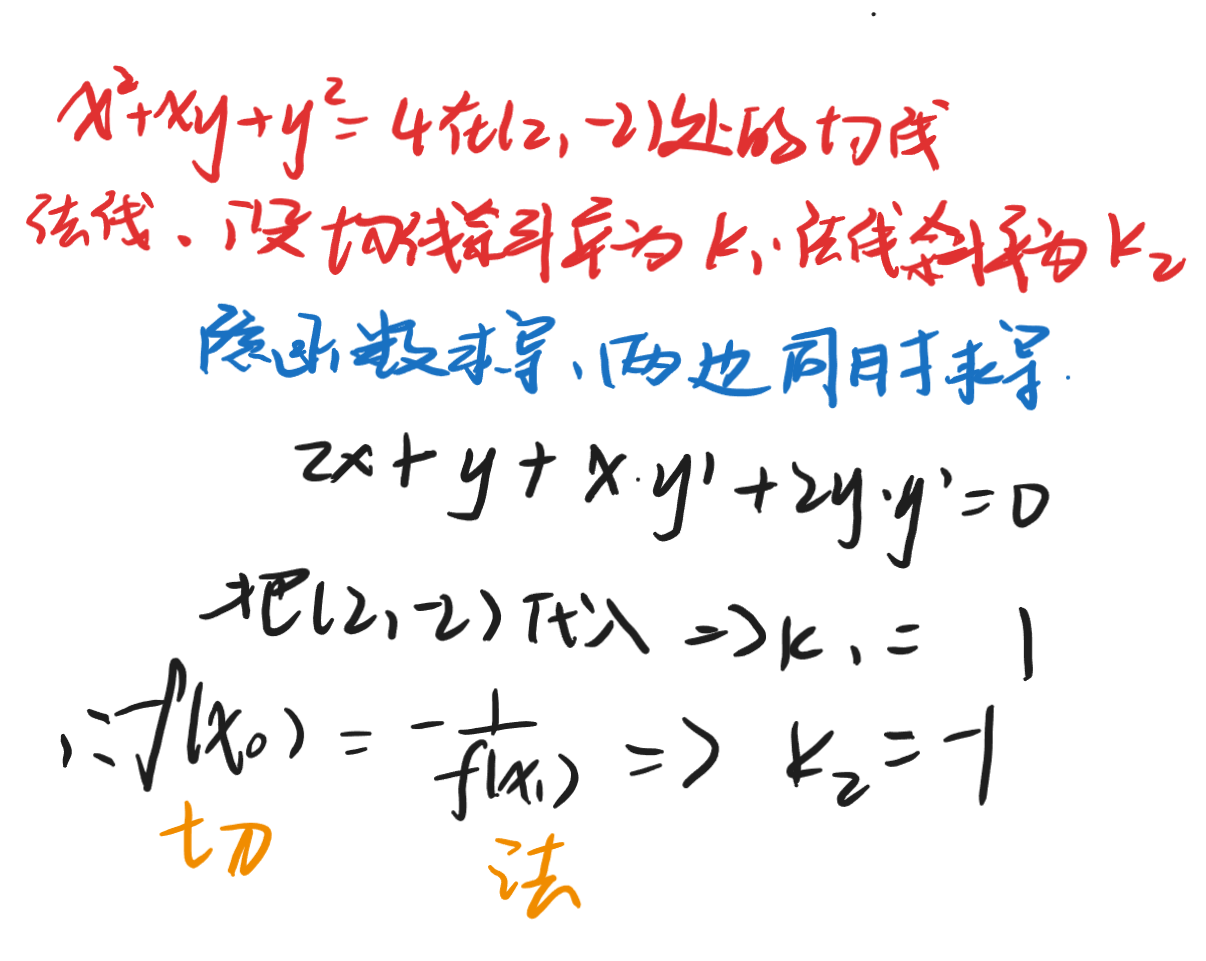 x²+xy+y²=4在(2,-2)处的切线
法线、设切线斜率为k₁.法线斜率为k₂
隐函数求导、两边同时求导.
2x+y+x·y'+2y·y'=0
把(2,-2)代入 => k₁= 1
∵f(x₀) = -1/f(x₁) => k₂=-1
切 法